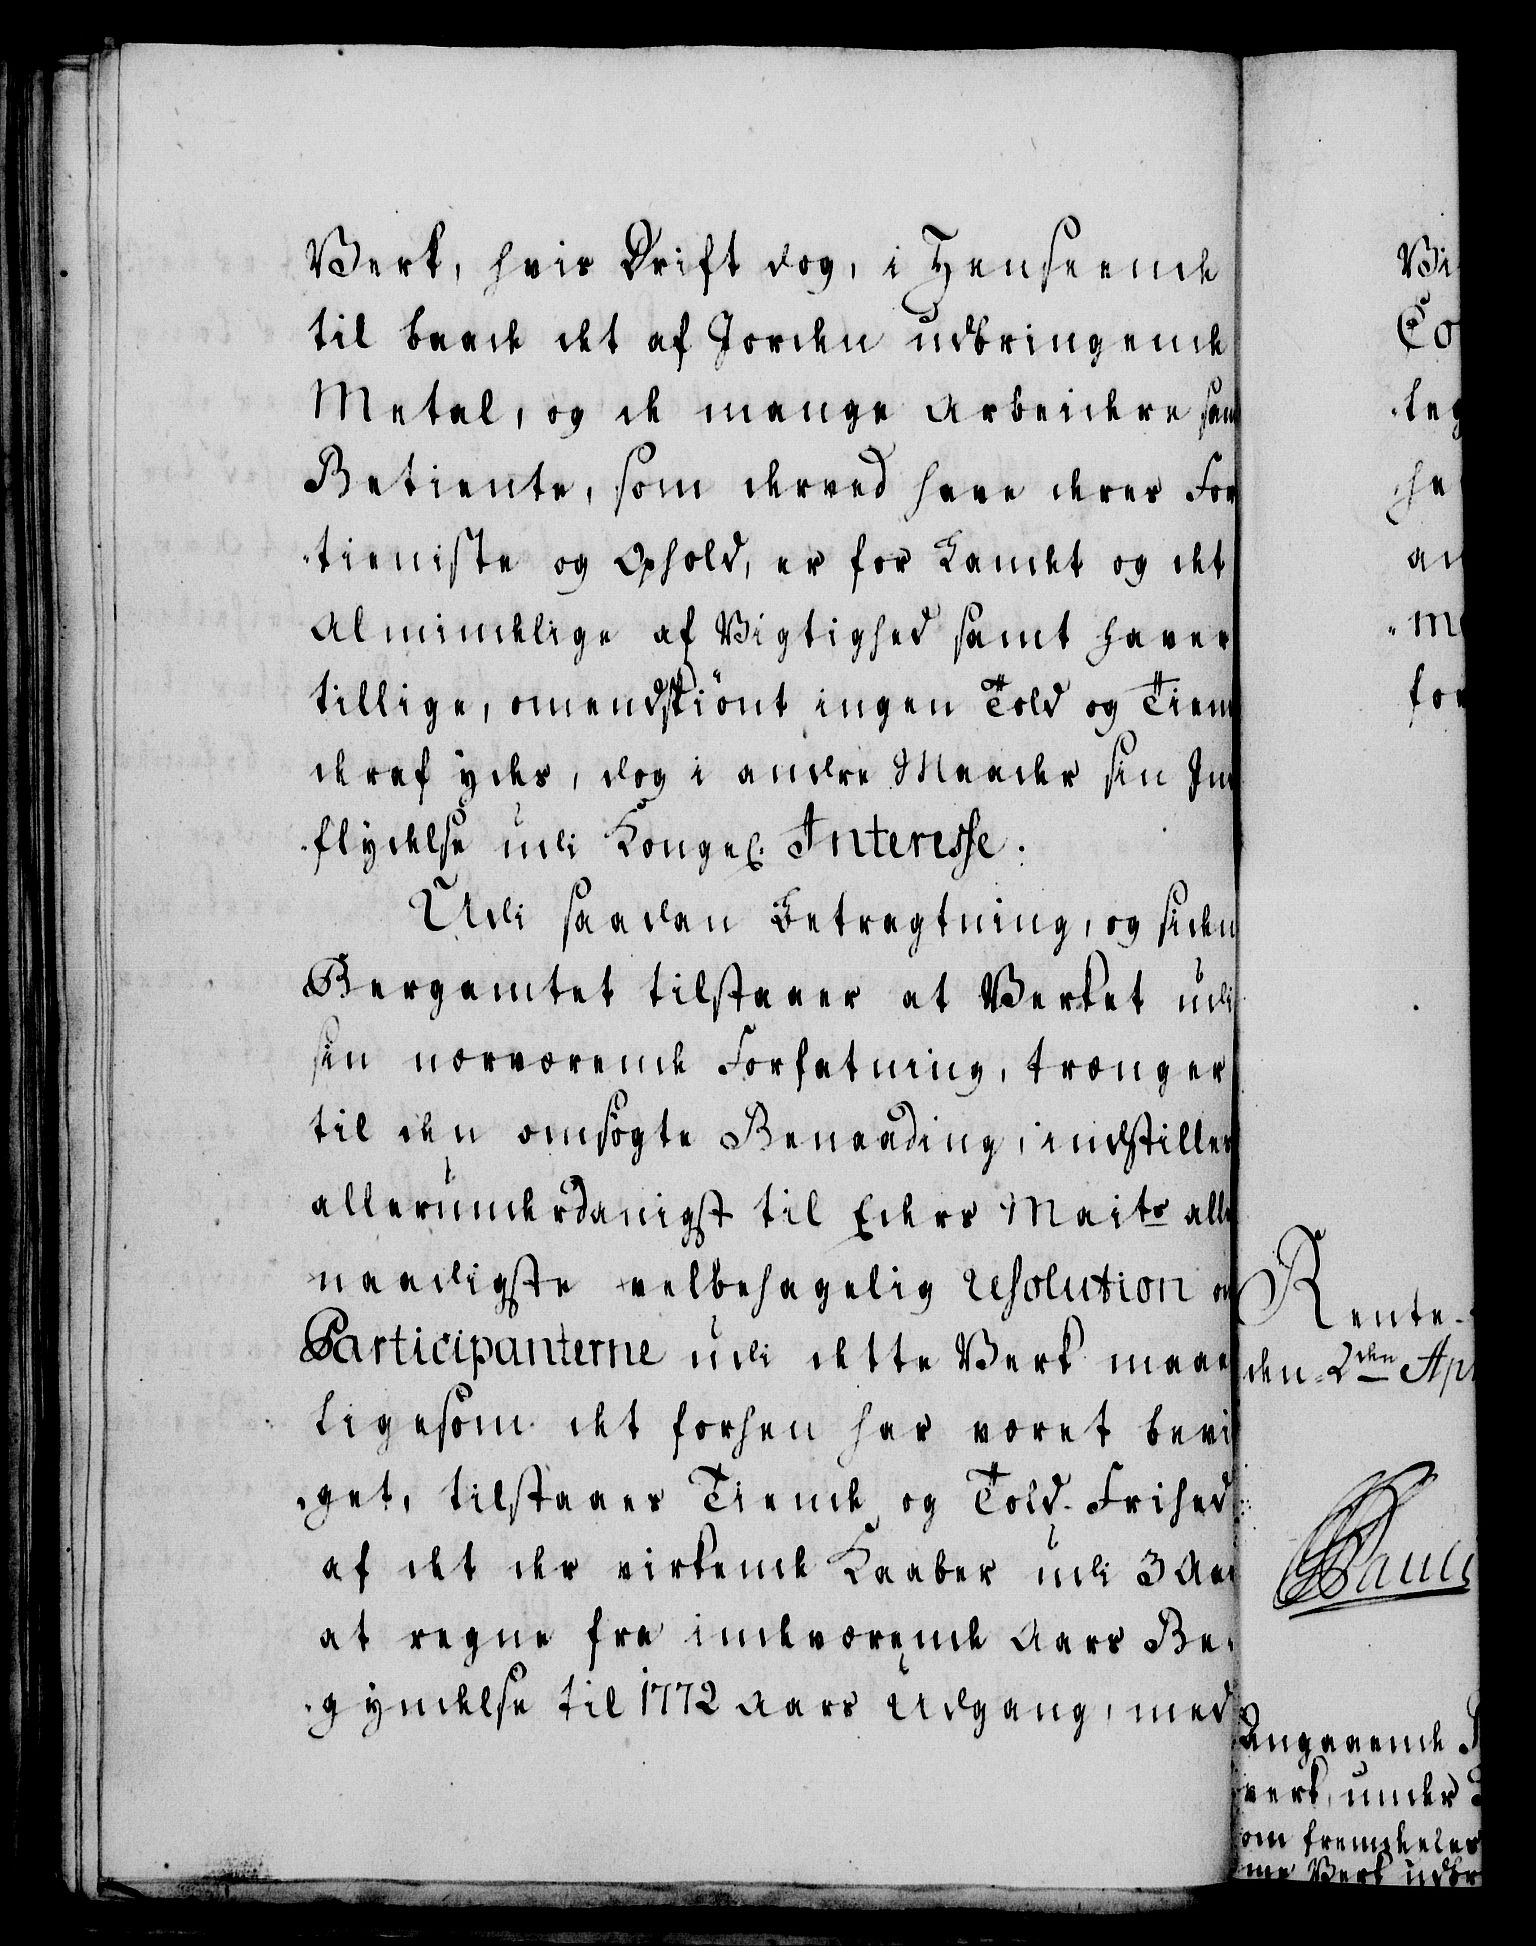 Verk, hvis Drift dog, i Henseende
til baade det af Jorden udbringende
Metal, og de mange Arbeidere sam
Betiente, som derved have deres For
-tieniste og Ophold, er for Landet og det
Almindelige af Vigtighed samt haver
tillige, omendskiönt ingen Told og Tiend
deraf ydes, dog i andre Maader sin Ind
-flydelse udi Kongel. Interesse.
Udi saadan Betragtning, og siden
Bergamtet tilstaaer at Verket udi
sin nærværende Forfatning, trænger
til den omsøgte Benaading, indstilles
allerunderdanigst til Eders Maits alle
naadigste velbehagelig resolution om
Participanterne udi dette Verk maae
ligesom det forhen har været bevil
-get, tilstaaes Tiende og Told-Frihed
af det der virkende Kaaber udi 3 Aar
at regne fra indeværende Aars Be-
-gyndelse til 1772 Aars Udgang, med
Vi
Co
-leg
-he
an
-me
for
Rente-
den 2den Apr
Angaaende
verk, under
om fremdeles
me Verk udbr